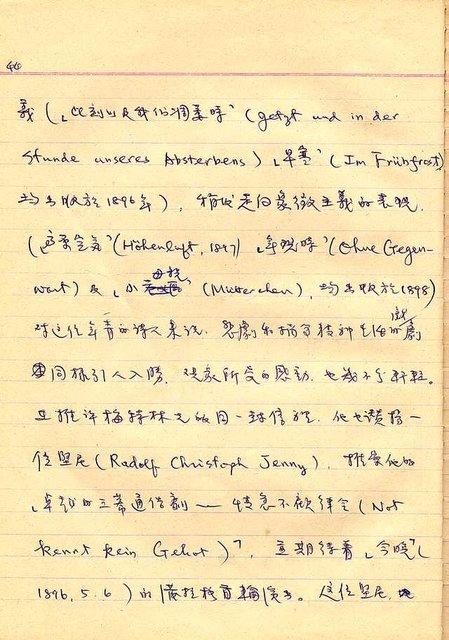 44
義(「此刻以及我們凋零時」(getzt und in der
Stunde unseres Absterbens)「早寒」(Im Frühfrost)
均出版於1896年),稍後走向象徵主義的表現,
(「高空氣」(Höhenluft, 1897)「無現時」(Ohne Gegen-
wart) 及「小母親」(Mütterchen), 均出版於1898)
對這位年青的詩人來說,悲劇和描寫精神生活的戲劇
同樣引人入勝,觀眾所受的感動,也幾乎
在推許梅特林克的同一封信裡,他也讚揚一
位堅尼(Radolf Christoph Jenny),推崇他的
「卓越的三幕通俗劇——情急不顧律令(Not
kennt kein Gebot)」,並期待着「今晚」(
1896, 5. 6)的布拉格首輪演出。這位堅尼,